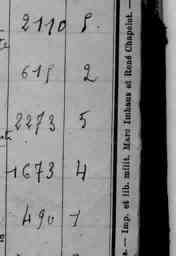 2110 5.
615 2
2273 5
1673 4
490 1
— Imp. et lib. milit. Marc Imhaus et René Chapelot. —